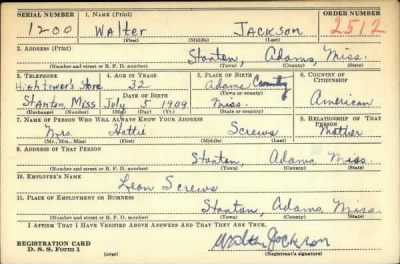 SERIAL NUMBER 1. NAME (Print) ORDER NUMBER
1200 Walter Jackson 2512
(First) (Middle) (Last)
2. ADDRESS (Print)
Stanton, Adams, Miss.
(Number and street or R. F. D. number) (Town) (County) (State)
3. TELEPHONE 4. AGE IN YEARS 5. PLACE OF BIRTH 6. COUNTRY OF CITIZENSHIP
Hightower's Store 32 Adams County
DATE OF BIRTH (Town or county)
Stanton, Miss July 5 1909 Miss. American
(Exchange) (Number) (Mo.) (Day) (Yr.) (State or country)
7. NAME OF PERSON WHO WILL ALWAYS KNOW YOUR ADDRESS 8. RELATIONSHIP OF THAT PERSON
Mrs. Hattie Screws Mother
(Mr., Mrs., Miss) (First) (Middle) (Last)
9. ADDRESS OF THAT PERSON
Stanton, Adams, Miss.
(Number and street or R. F. D. number) (Town) (County) (State)
10. EMPLOYER'S NAME
Leon Screws
11. PLACE OF EMPLOYMENT OR BUSINESS
Stanton, Adams, Miss.
(Number and street or R. F. D. number) (Town) (County) (State)
I AFFIRM THAT I HAVE VERIFIED ABOVE ANSWERS AND THAT THEY ARE TRUE.
REGISTRATION CARD
D. S. S. Form 1 (over) Walter Jackson
(Registrant's signature)